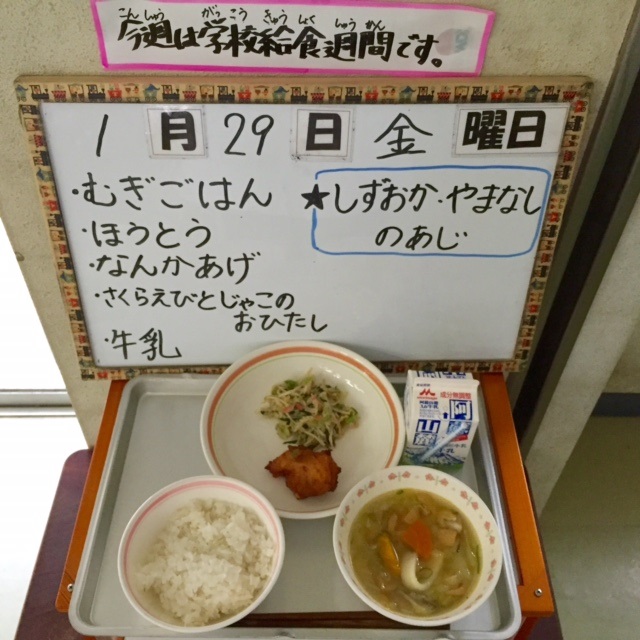 こんしゅう がっこう きゅうしょくしゅうかん
今週は学校給食週間です。
1月29日金曜日
・むぎごはん
・ほうとう
・なんかあげ
・さくらえびとじゃこの
おひたし
・牛乳
★しずおか・やまなし
のあじ
成分無調整